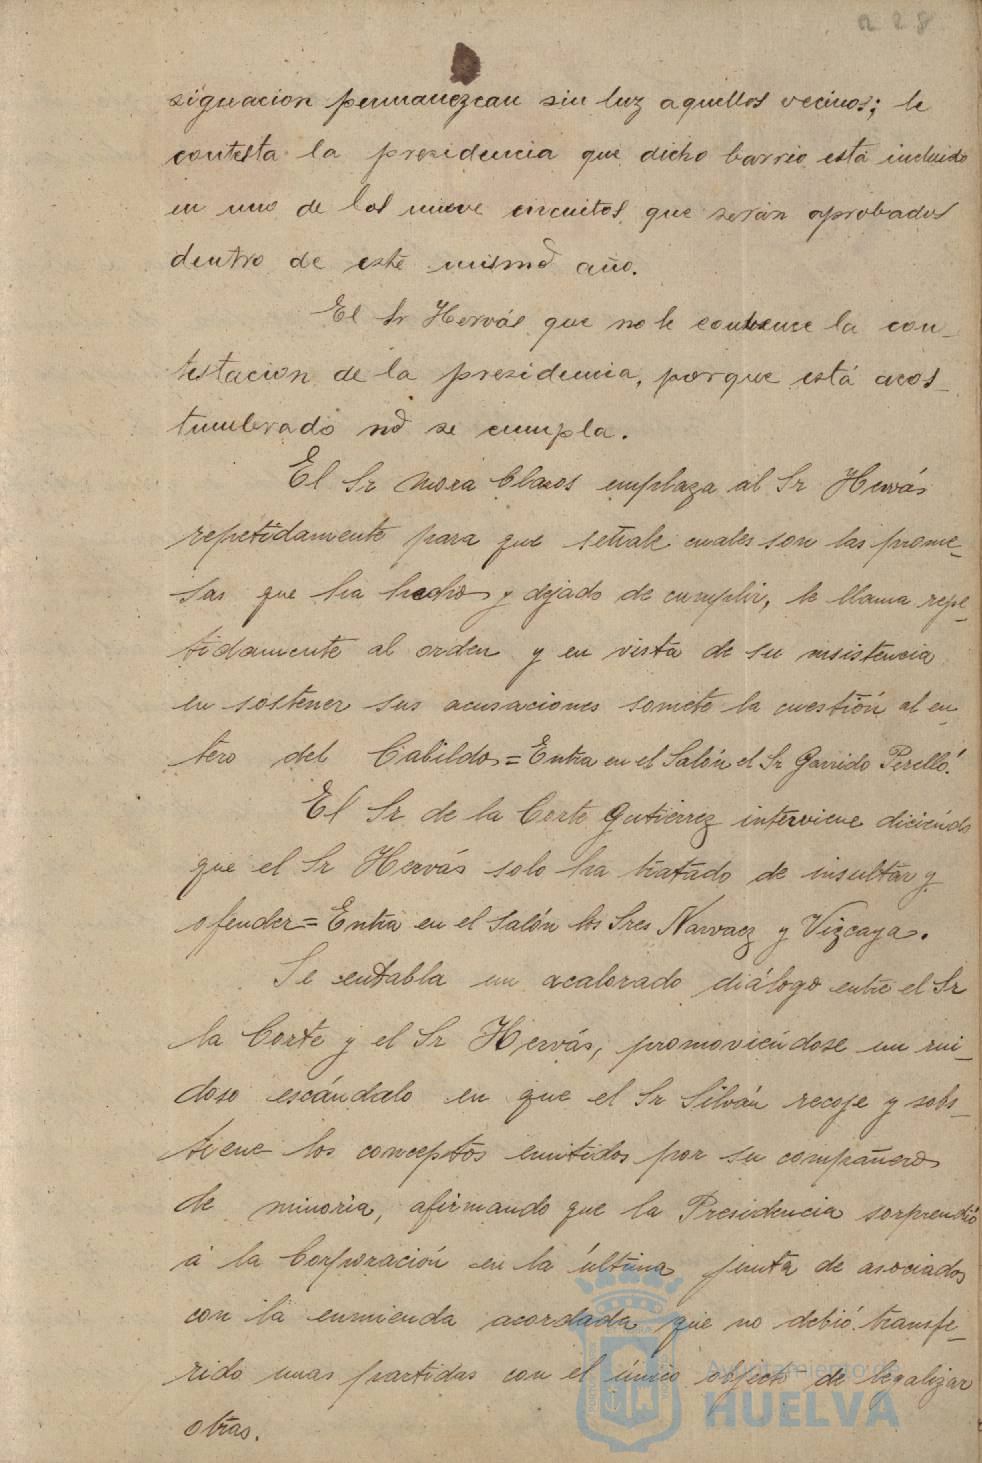 228
signacion permanezcan sin luz aquellos vecinos; le
contesta la presidencia que dicho barrio está incluido
en uno de los nueve circuitos que serán aprobados
dentro de este mismo año.
El Sr Hervás que no le convence la con-
testacion de la presidencia, porque está acos-
tumbrado no se cumpla.
El Sr Mora Claros emplaza al Sr Hervás
repetidamente para que señale cuales son las prome-
sas que ha hecho y dejado de cumplir, le llama repe-
tidamente al orden y en vista de su insistencia
en sostener sus acusaciones somete la cuestión al en-
tero del Cabildo = Entra en el Salón el Sr Garrido Perelló.
El Sr de la Corte Gutierrez interviene diciendo
que el Sr Hervás solo ha tratado de insultar y
ofender = Entra en el Salón los Sres Narvaez y Vizcaya.
Se entabla un acalorado diálogo entre el Sr
la Corte y el Sr Hervás, promoviéndose un rui-
doso escándalo en que el Sr Silván recoje y sobs-
tiene los conceptos emitidos por su compañero
de minoria, afirmando que la Presidencia sorprendió
á la Corporación en la última junta de asociados
con la enmienda acordada que no debió transfe-
rido unas partidas con el único objeto de legalizar
otras.
Ayuntamiento de
HUELVA